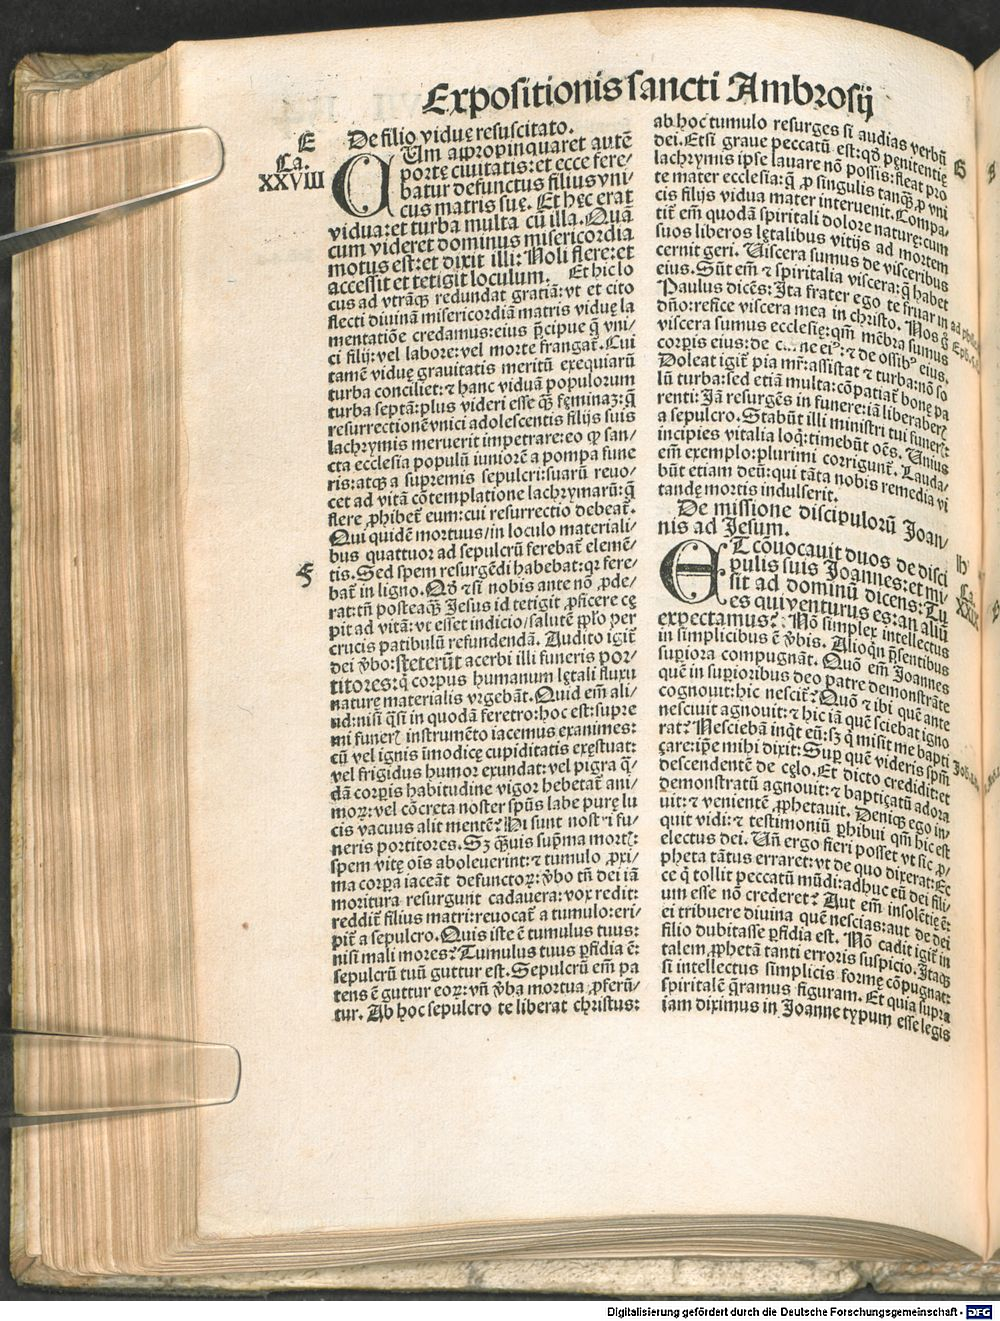 Expositionis sancti Ambrosij
E
Ca.
XXVIII
De filio viduę resuscitato.
CUm appropinquaret autē
portę ciuitatis: et ecce fere/
batur defunctus filius vni/
cus matris suę. Et hęc erat
vidua: et turba multa cū illa. Quā
cum videret dominus misericordia
motus est: et dixit illi: Noli flere: et
accessit et tetigit loculum. Et hic lo
cus ad vtrāqꝫ redundat gratiā: vt et cito
flecti diuinā misericordiā matris viduę la
mentatiōe credamus: eius p̄cipue q̄ vni/
ci filij: vel labore: vel morte frangat̄. Cui
tamē viduę grauitatis meritū exequiarū
turba conciliet: ⁊ hanc viduā populorum
turba septā: plus videri esse qꝫ̄ fęminaꝫ: q̄
resurrectionē vnici adolescentis filijs suis
lachrymis meruerit impetrare: eo ꝙ san/
cta ecclesia populū iuniorē a pompa fune
ris: atqꝫ a supremis sepulcri: suarū reuo/
cet ad vitā cōtemplatione lachrymarū: q̄
flere ꝓhibet̄ eum: cui resurrectio debeat̄.
Qui quidē mortuus/in loculo materiali/
bus quattuor ad sepulcrū ferebat̄ elemē/
F
tis. Sed spem resurgēdi habebat: qꝛ fere/
bat̄ in ligno. Qd̄ ⁊si nobis ante nō ꝓde/
rat: tn̄ posteaqꝫ̄ Jesus id tetigit ꝓficere cę
pit ad vitā: vt esset indicio/salutē pp̄lo per
crucis patibulū refundendā. Audito igit̄
dei v̄bo: steterūt acerbi illi funeris por/
titores: q̄ corpus humanum lętali fluxu
naturę materialis vrgebāt. Quid em̄ ali/
ud: nisi q̄si in quodā feretro: hoc est: supre
mi funerꝭ instrumēto iacemus exanimes:
cū vel ignis īmodicę cupiditatis exęstuat:
vel frigidus humor exundat: vel pigra q̄/
dā corpis habitudine vigor hebetat̄ ani/
moꝝ: vel cōcreta noster sp̄us labe purę lu
cis vacuus alit mentē? Hi sunt nostri fu/
neris portitores. Sꝫ qꝫ̄uis sup̄ma mortꝭ:
spem vitę oīs aboleuerint: ⁊ tumulo ꝓxi/
ma corpa iaceāt defunctoꝝ: v̄bo tn̄ dei iā
moritura resurgunt cadauera: vox redit:
reddit̄ filius matri: reuocat̄ a tumulo: eri/
pit̄ a sepulcro. Quis iste ē tumulus tuus:
nisi mali mores? Tumulus tuus ꝑfidia ē:
sepulcrū tuū guttur est. Sepulcrū em̄ pa
tens ē guttur eoꝝ: vn̄ v̄ba mortua ꝓferū/
tur. Ab hoc sepulcro te liberat christus:
ab hoc tumulo resurges si audias verbū
dei. Etsi graue peccatū est: qd̄ pęnitentię
G
lachrymis ipse lauare nō possis: fleat pro
te mater ecclesia: q̄ ꝓ singulis tanqꝫ̄ ꝓ vni
cis filijs vidua mater interuenit. Compa/
tit̄ em̄ quodā spiritali dolore naturę: cum
suos liberos lętalibus vitijs ad mortem
cernit geri. Viscera sumus de visceribus
eius. Sūt em̄ ⁊ spiritalia viscera: q̄ habet
Paulus dicēs: Ita frater ego te fruar in
dn̄o: refice viscera mea in christo. Nos g̊
viscera sumus ecclesię: qm̄ mēbra sumus
Eph.
corpis eius: de ne eiꝰ: ⁊ de ossibꝰ eius.
Doleat igit̄ pia mr̄: assistat ⁊ turba: nō so
lū turba: sed etiā multa: cōpatiat̄ bonę pa
renti: Iā resurgēs in funere: iā liberaberꝭ
a sepulcro. Stabūt illi ministri tui funerꝭ:
incipies vitalia loqͥ: timebūt oēs. Vnius
em̄ exemplo: plurimi corrigunt̄. Lauda/
būt etiam deū: qui tāta nobis remedia vi
tandę mortis indulserit.
De missione discipulorū Joan/
nis ad Jesum.
H
Ca.
XXIX
ET cōuocauit duos de disci
pulis suis Joannes: et mi/
sit ad dominū dicens: Tu
es qui venturus es: an aliū
expectamus? Nō simplex intellectus
in simplicibus ē v̄bis. Alioqͥn p̄sentibus
supiora compugnāt. Quō em̄ Joannes
quē in supioribus deo patre demonstrāte
cognouit: hic nescit̄? Quō ⁊ ibi quē ante
nesciuit agnouit: ⁊ hic iā quē sciebat igno
rat? Nesciebā inqͥt eū: sꝫ q̄ misit me bapti
çare: ip̄e mihi dixit: Suꝑ quē videris sp̄m
descendentē de cęlo. Et dicto credidit: et
demonstratū agnouit: ⁊ baptiçatū adora
uit: ⁊ venientē ꝓphetauit. Deniqꝫ ego in/
quit vidi: ⁊ testimoniū ꝑhibui qm̄ hic est
electus dei. Vn̄ ergo fieri posset vt sic ꝓ/
pheta tātus erraret: vt de quo dixerat: Ec
ce q̄ tollit peccatū mūdi: adhuc eū dei fili/
um esse nō crederet? Aut em̄ insolētię ē:
ei tribuere diuina quē nescias: aut de dei
filio dubitasse ꝑfidia est. Nō cadit igit̄ in
talem ꝓphetā tanti erroris suspicio. Itaqꝫ
si intellectus simplicis formę cōpugnat:
spiritalē q̄ramus figuram. Et quia supra
iam diximus in Joanne typum esse legis